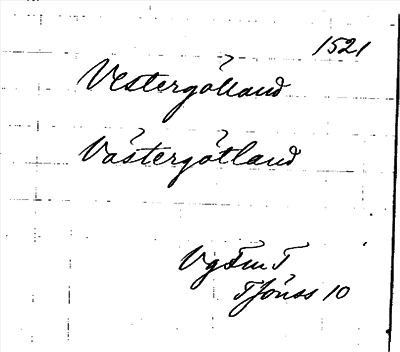 1521
Vestergötland
Västergötland
VgFmT
Tfönss 10